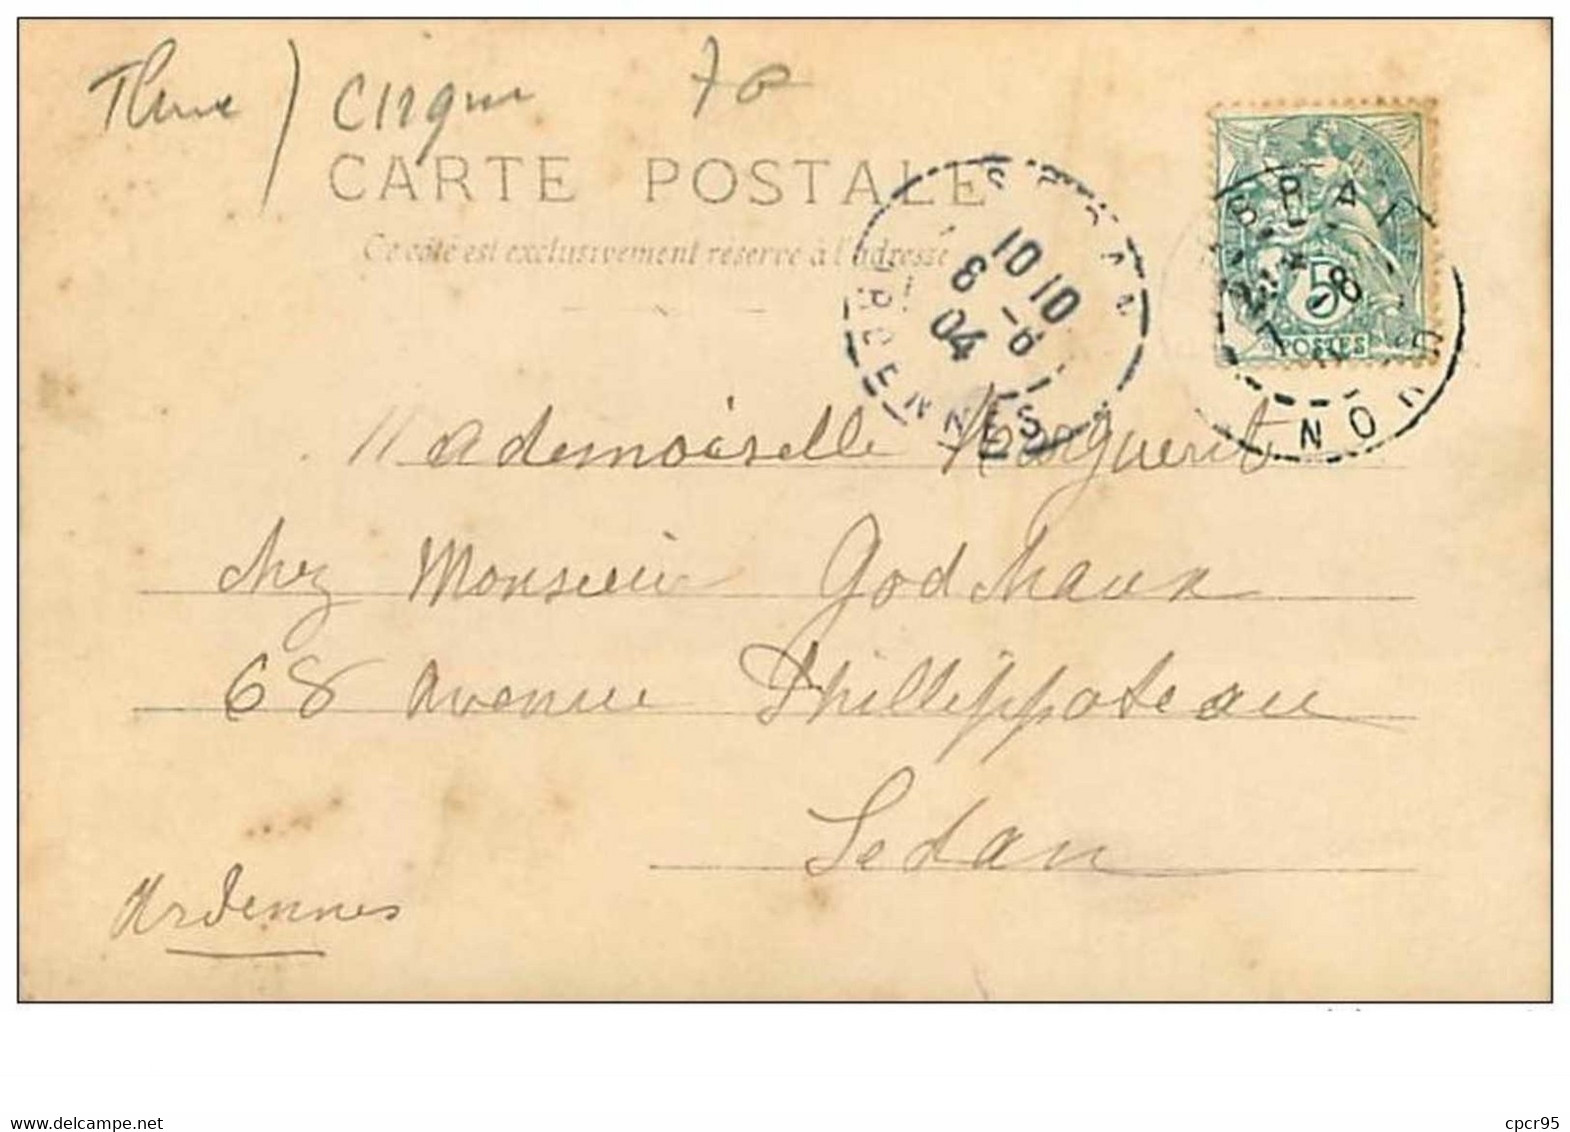 Cirque 70
CARTE POSTALE
Ce côté est exclusivement réservé à l'adresse
SEDAN
10 10
8 -8
04
ARDENNES
5
POSTES
7 -8
NORD
Mademoiselle Marguerit
chez Monsieur Godchaux
68 Avenue Phillippoteau
Sedan
Ardennes
www.delcampe.net
cpcr95